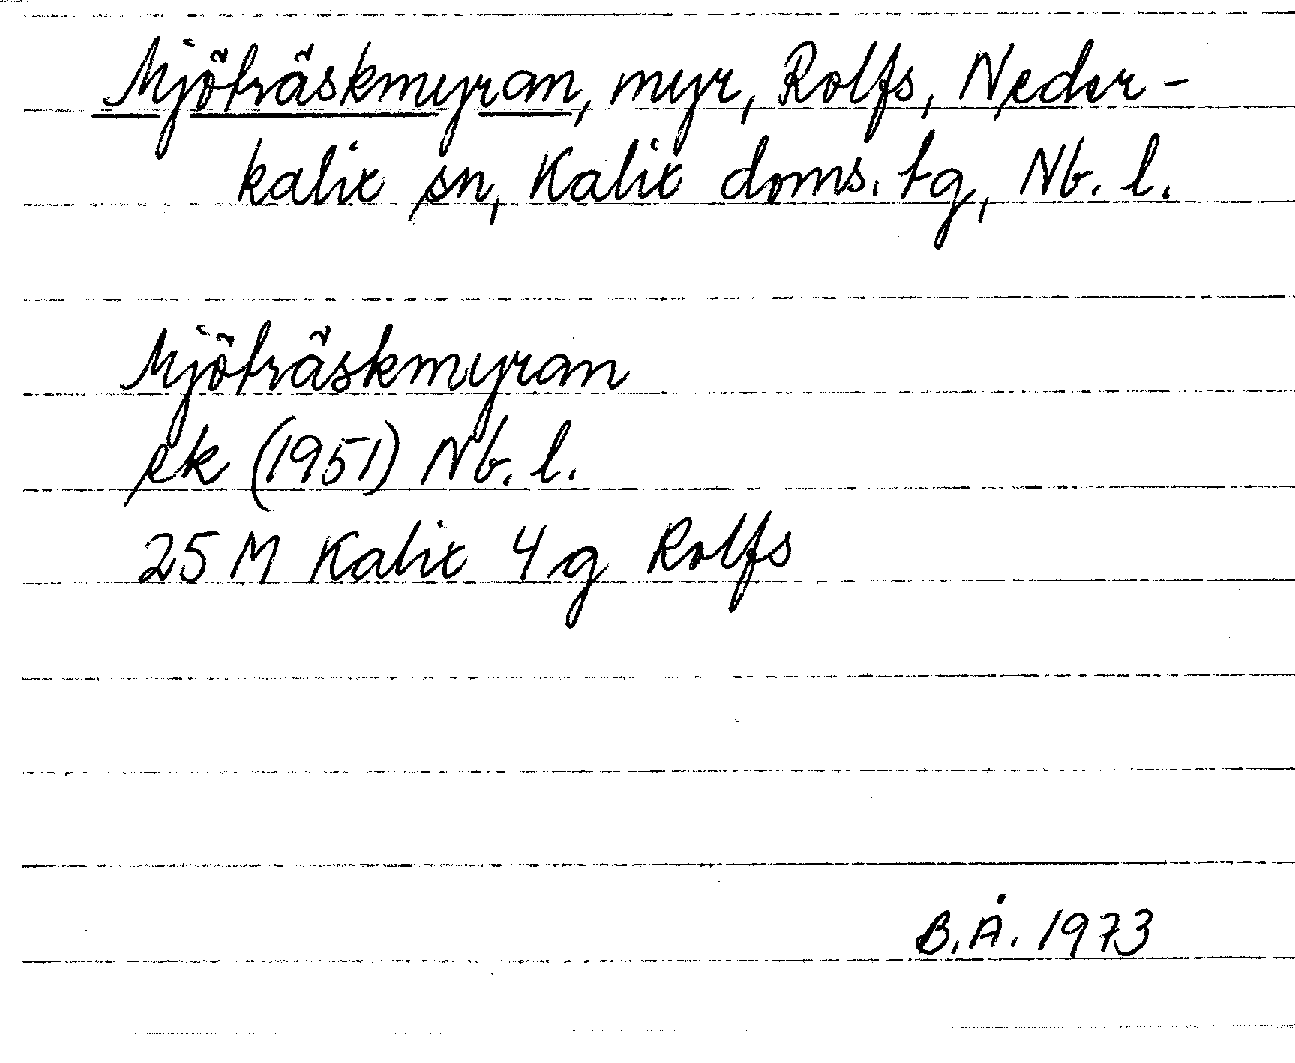 Mjöträskmyran, myr, Rolfs, Neder-
kalix sn, Kalix doms. tg, Nb. l.
Mjöträskmyran
ek (1951) Nb. l.
25 M Kalix 4 g Rolfs
B.Å. 1973